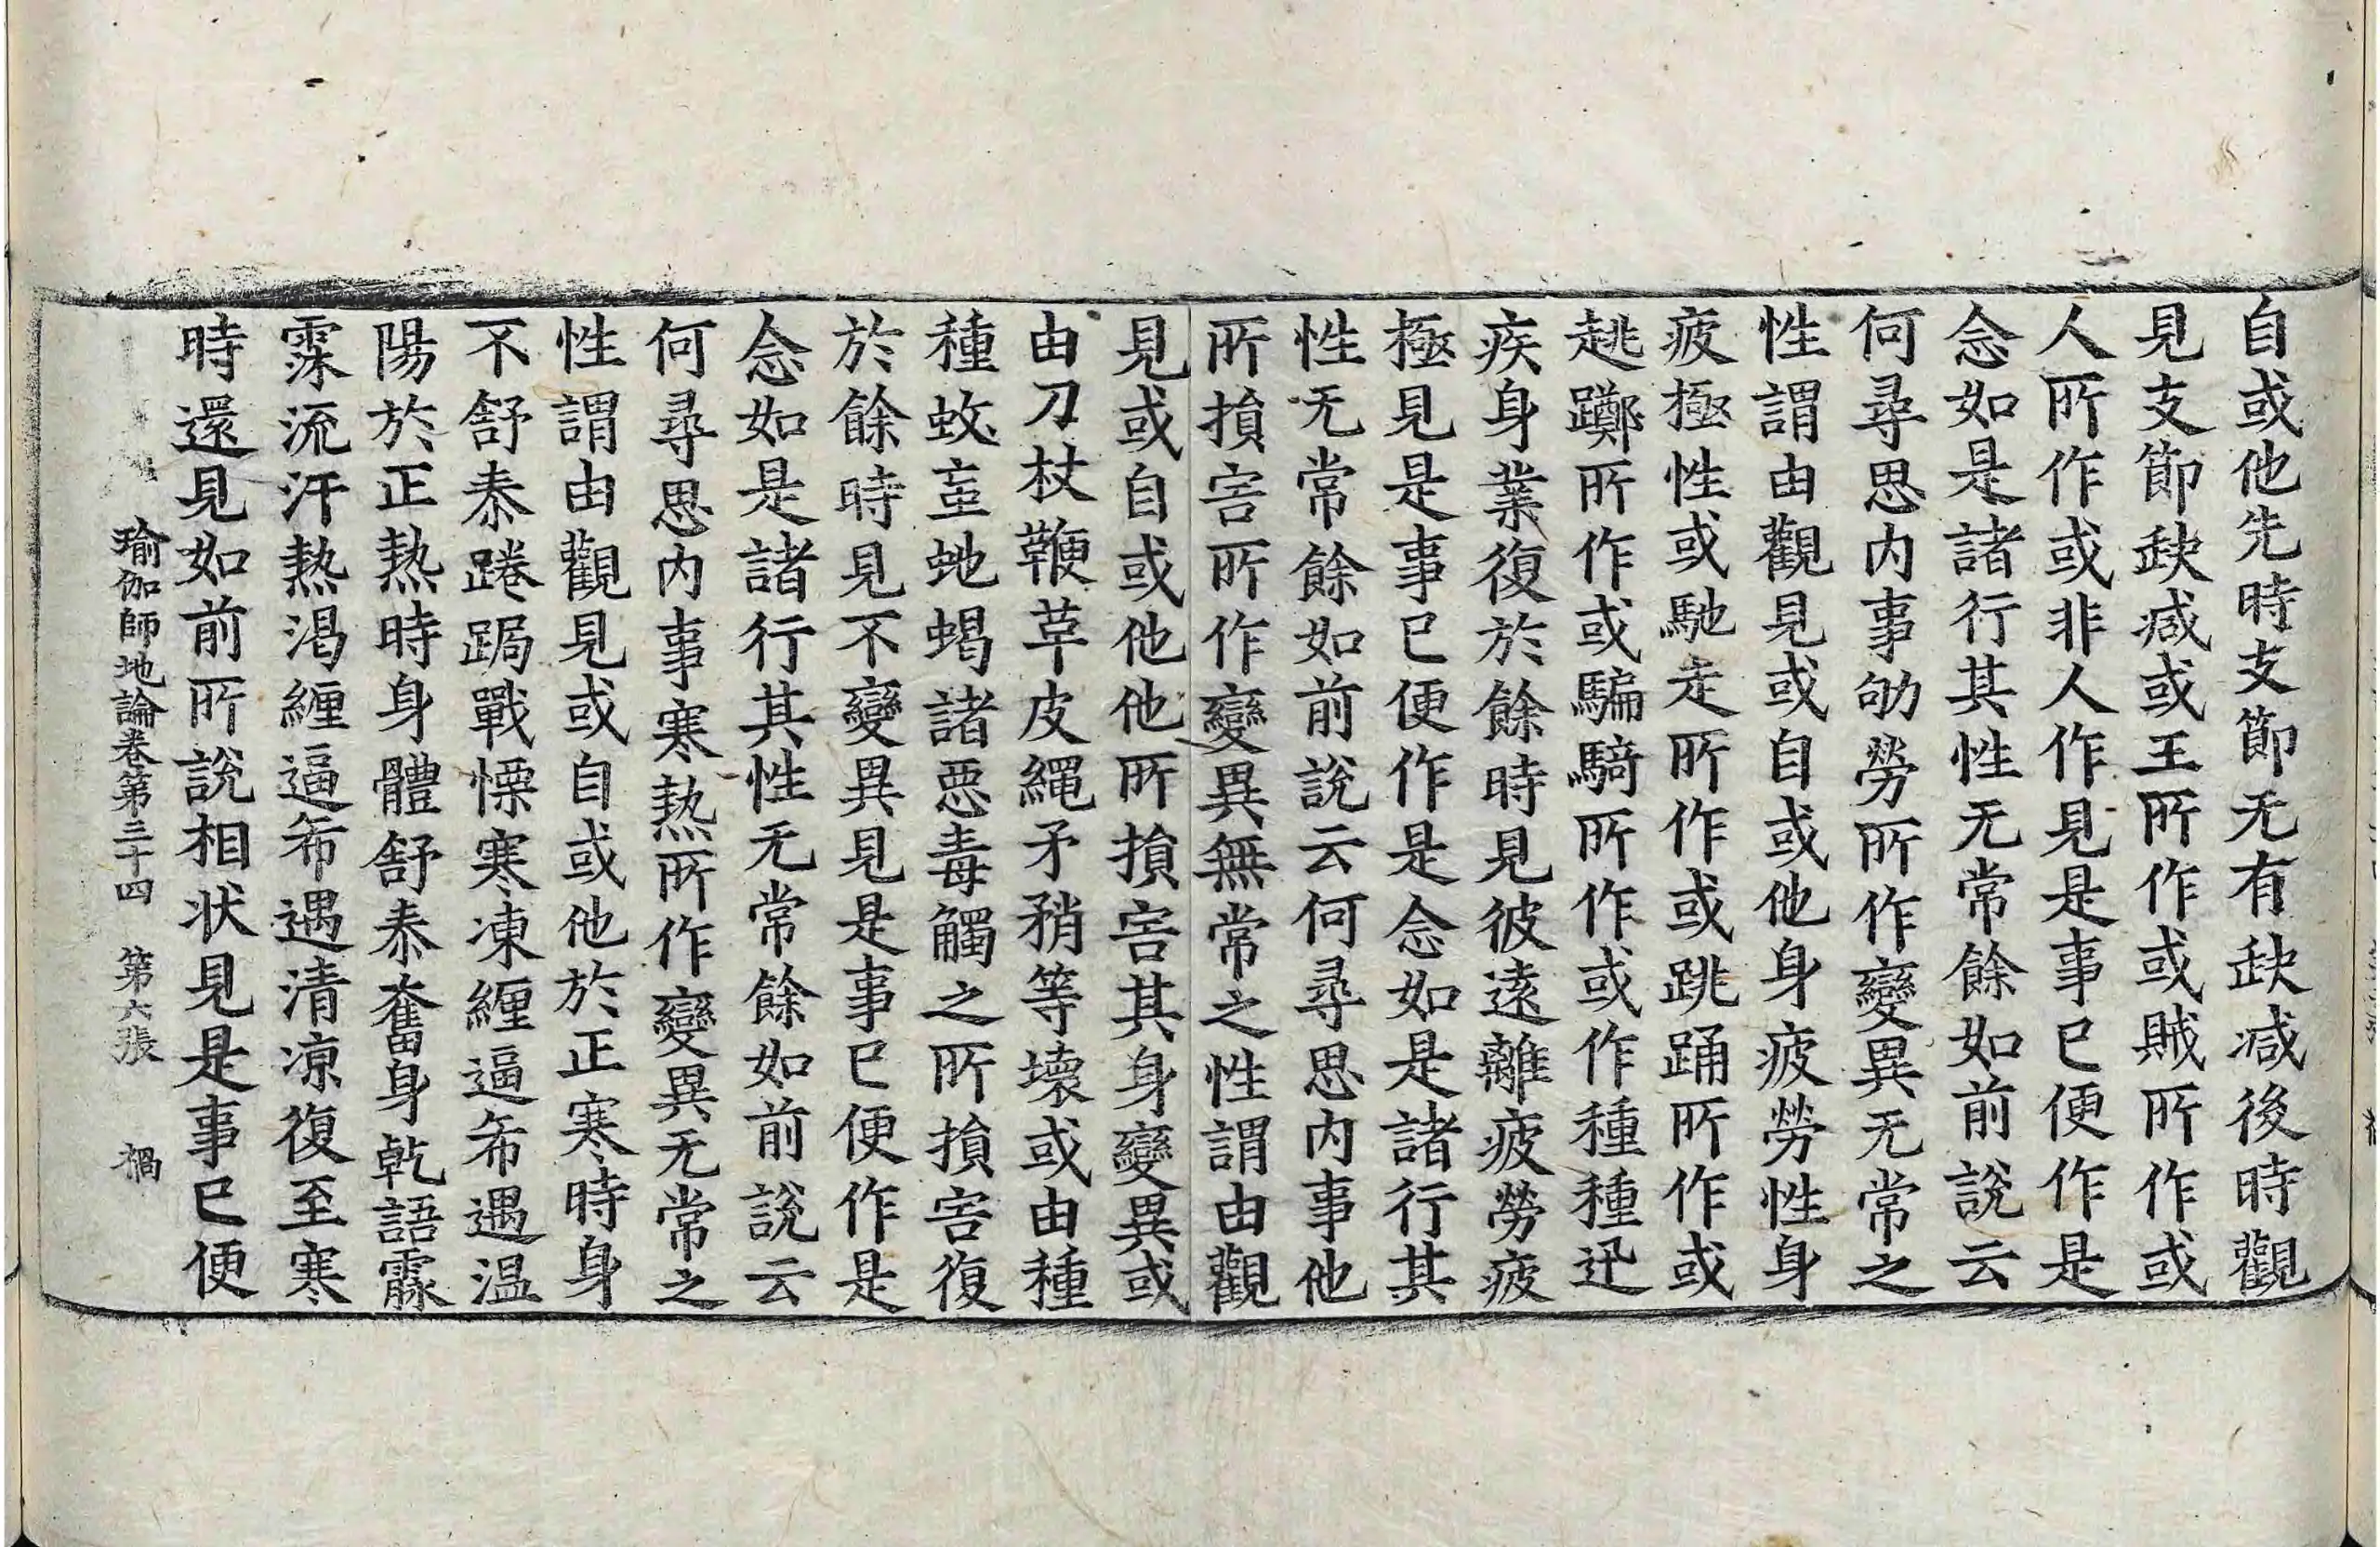 自或他先時支節无有缺減後時觀
見支節缺減或王所作或賊所作或
人所作或非人作見是事已便作是
念如是諸行其性无常餘如前說云
何尋思內事劬勞所作變異无常之
性謂由觀見或自或他身疲勞性身
疲極性或馳走所作或跳踊所作或
趒躑所作或騙騎所作或作種種迅
疾身業復於餘時見彼遠離疲勞疲
極見是事已便作是念如是諸行其
性无常餘如前說云何尋思內事他
所損害所作變異無常之性謂由觀
見或自或他他所損害其身變異或
由刀杖鞭革皮繩矛矟等壞或由種
種蚊虻蛇蝎諸惡毒觸之所損害復
於餘時見不變異見是事已便作是
念如是諸行其性无常餘如前說云
何尋思內事寒熱所作變異无常之
性謂由觀見或自或他於正寒時身
不舒泰踡跼戰慄寒凍纏逼希遇溫
陽於正熱時身體舒泰奮身乾語霢
霂流汗熱渴纏逼希遇清凉復至寒
時還見如前所說相狀見是事已便
瑜伽師地論卷第三十四　第六張　禍